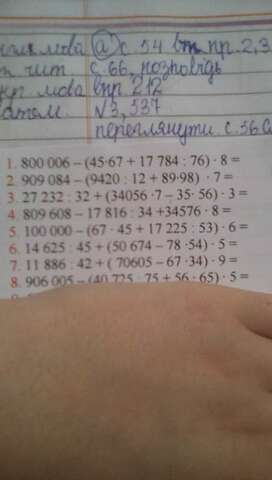 мова а с. 54 вт пр. 2,3
чит с. 66, розповідь
мова впр 212
матем. №3, 537
переглянути с. 56
1. 800 006 – (45·67 + 17 784 : 76) · 8 =
2. 909 084 – (9420 : 12 + 89·98) · 7 =
3. 27 232 : 32 + (34056 ·7 – 35· 56) · 3 =
4. 809 608 – 17 816 : 34 +34576 · 8 =
5. 100 000 – (67 · 45 + 17 225 : 53) · 6 =
6. 14 625 : 45 + (50 674 – 78 ·54) · 5 =
7. 11 886 : 42 + ( 70605 – 67 ·34) · 9 =
8. 906 005 – (40 725 : 75 + 56 · 65) · 5 =